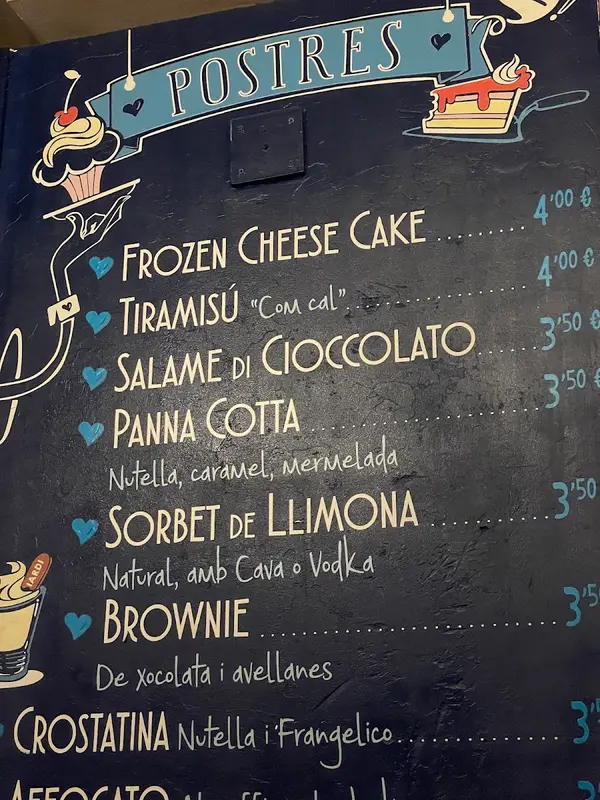 POSTRES
FROZEN CHEESE CAKE ........ 4'00 €
TIRAMISÚ "Com cal" ........ 4'00 €
SALAME DI CIOCCOLATO ..... 3'50 €
PANNA COTTA ........ 3'50 €
Nutella, caramel, mermelada
SORBET DE LLIMONA ........ 3'50
Natural, amb Cava o Vodka
BROWNIE ........ 3'5
De xocolata i avellanes
CROSTATINA Nutella i Frangelico ........ 3'
AFFOGATO